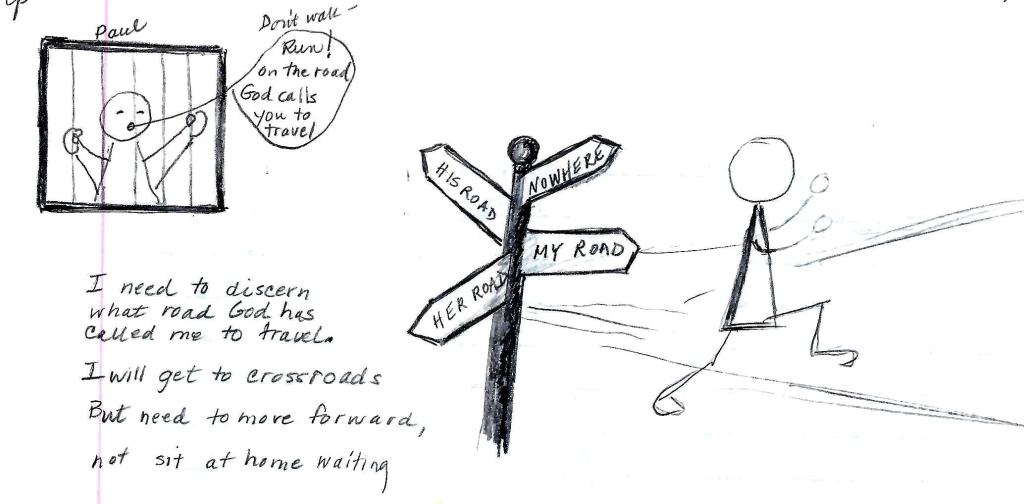 Paul
Don't walk –
Run!
on the road
God calls
you to
travel
HIS ROAD
NOWHERE
MY ROAD
HER ROAD
I need to discern
what road God has
called me to travel.
I will get to crossroads
But need to move forward,
not sit at home waiting